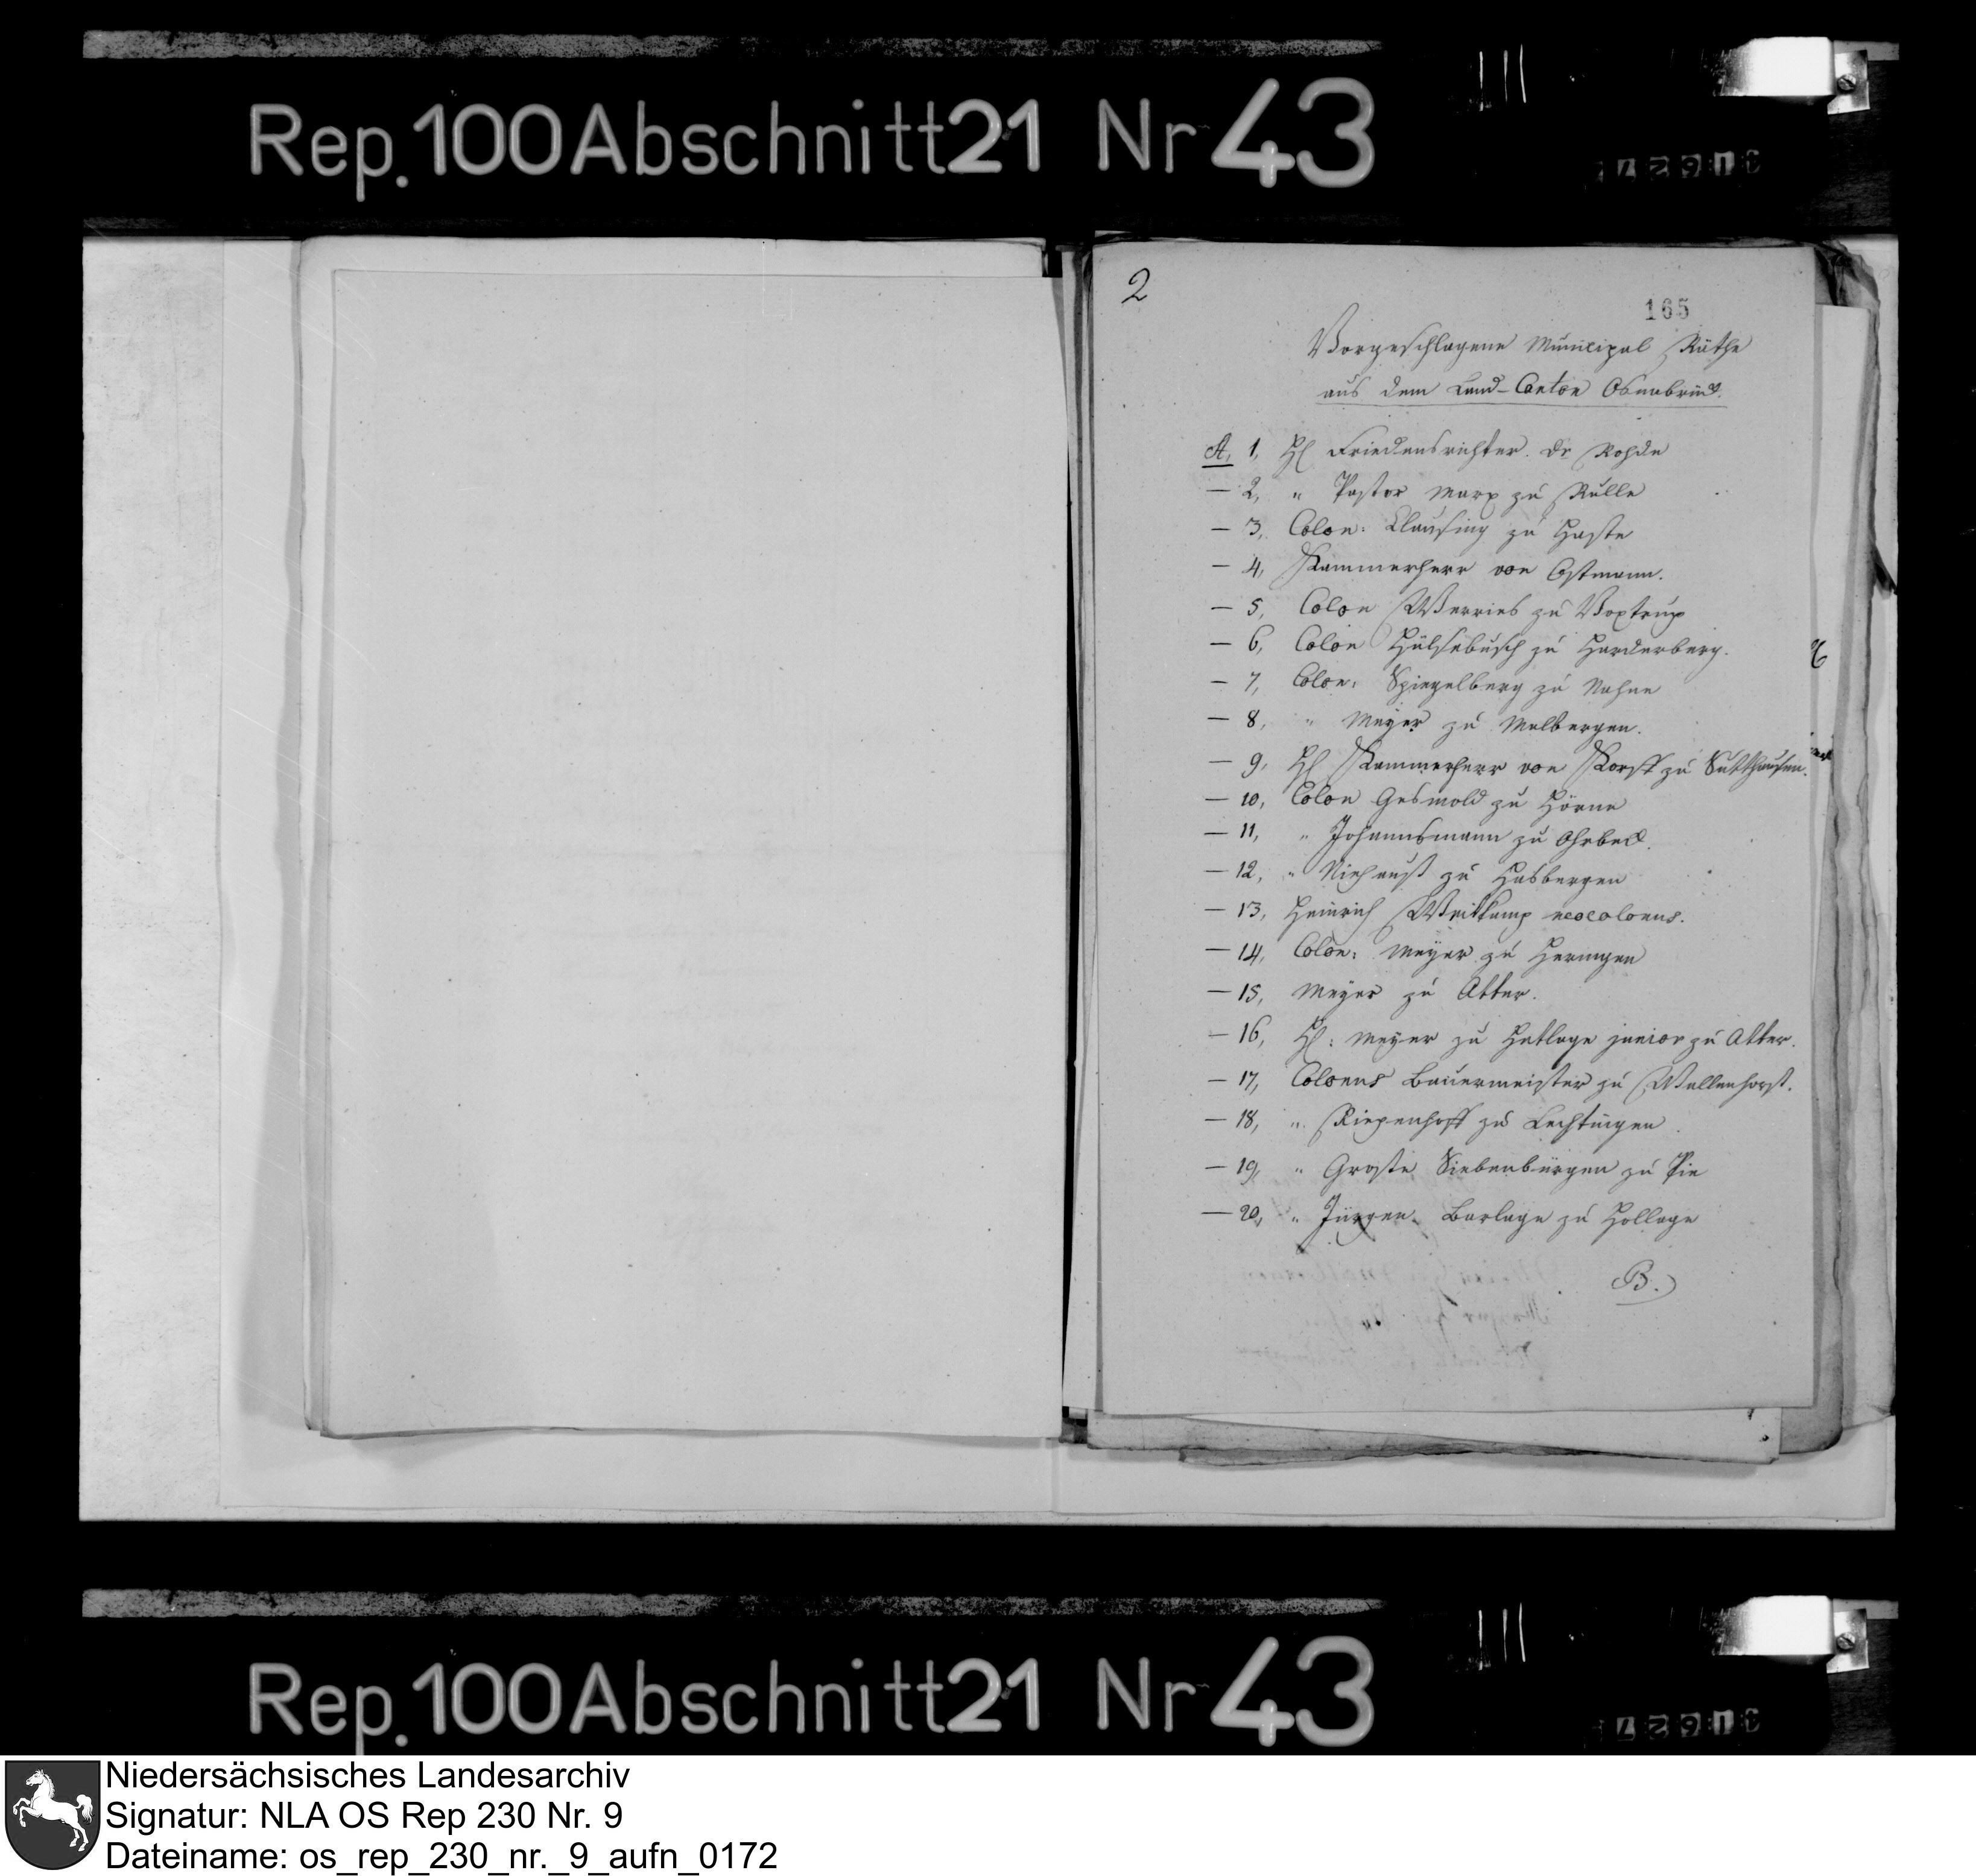 Rep. 100 Abschnitt 21 Nr 43
2
165
Vorgeschlagene Municipal Räthe
aus dem Land-Canton Osnabrück.
A, 1, H Friedensrichter Dr Rohde
— 2, " Pastor Marx zu Rulle
— 3, Colon: Clausing zu Haste
— 4, Kammerherr von Ostmann.
— 5, Colon Werries zu Voxtrup
— 6, Colon Hülsebusch zu Harderberg.
— 7, Colon: Spiegelberg zu Nahne
— 8, " Meyer zu Malbergen.
— 9, H Kammerherr von Korff zu Sutthausen.
— 10, Colon Gesmold zu Hörne
— 11, " Johannsmann zu Ohrbeck.
— 12, " Niehauß zu Hasbergen
— 13, Heinrich Weitkamp neocolonus.
— 14, Colon: Meyer zu Heringen
— 15, Meyer zu Atter.
— 16, H: Meyer zu Hetlage junior zu Atter.
— 17, Colonus Bauermeister zu Wallenhorst.
— 18, " Riepenhoff zu Lechtingen
— 19, " Große Siebenbürgen zu Pie
— 20, " Jürgen Barlage zu Hollage
B.)
Rep. 100 Abschnitt 21 Nr 43
Niedersächsisches Landesarchiv
Signatur: NLA OS Rep 230 Nr. 9
Dateiname: os_rep_230_nr._9_aufn_0172